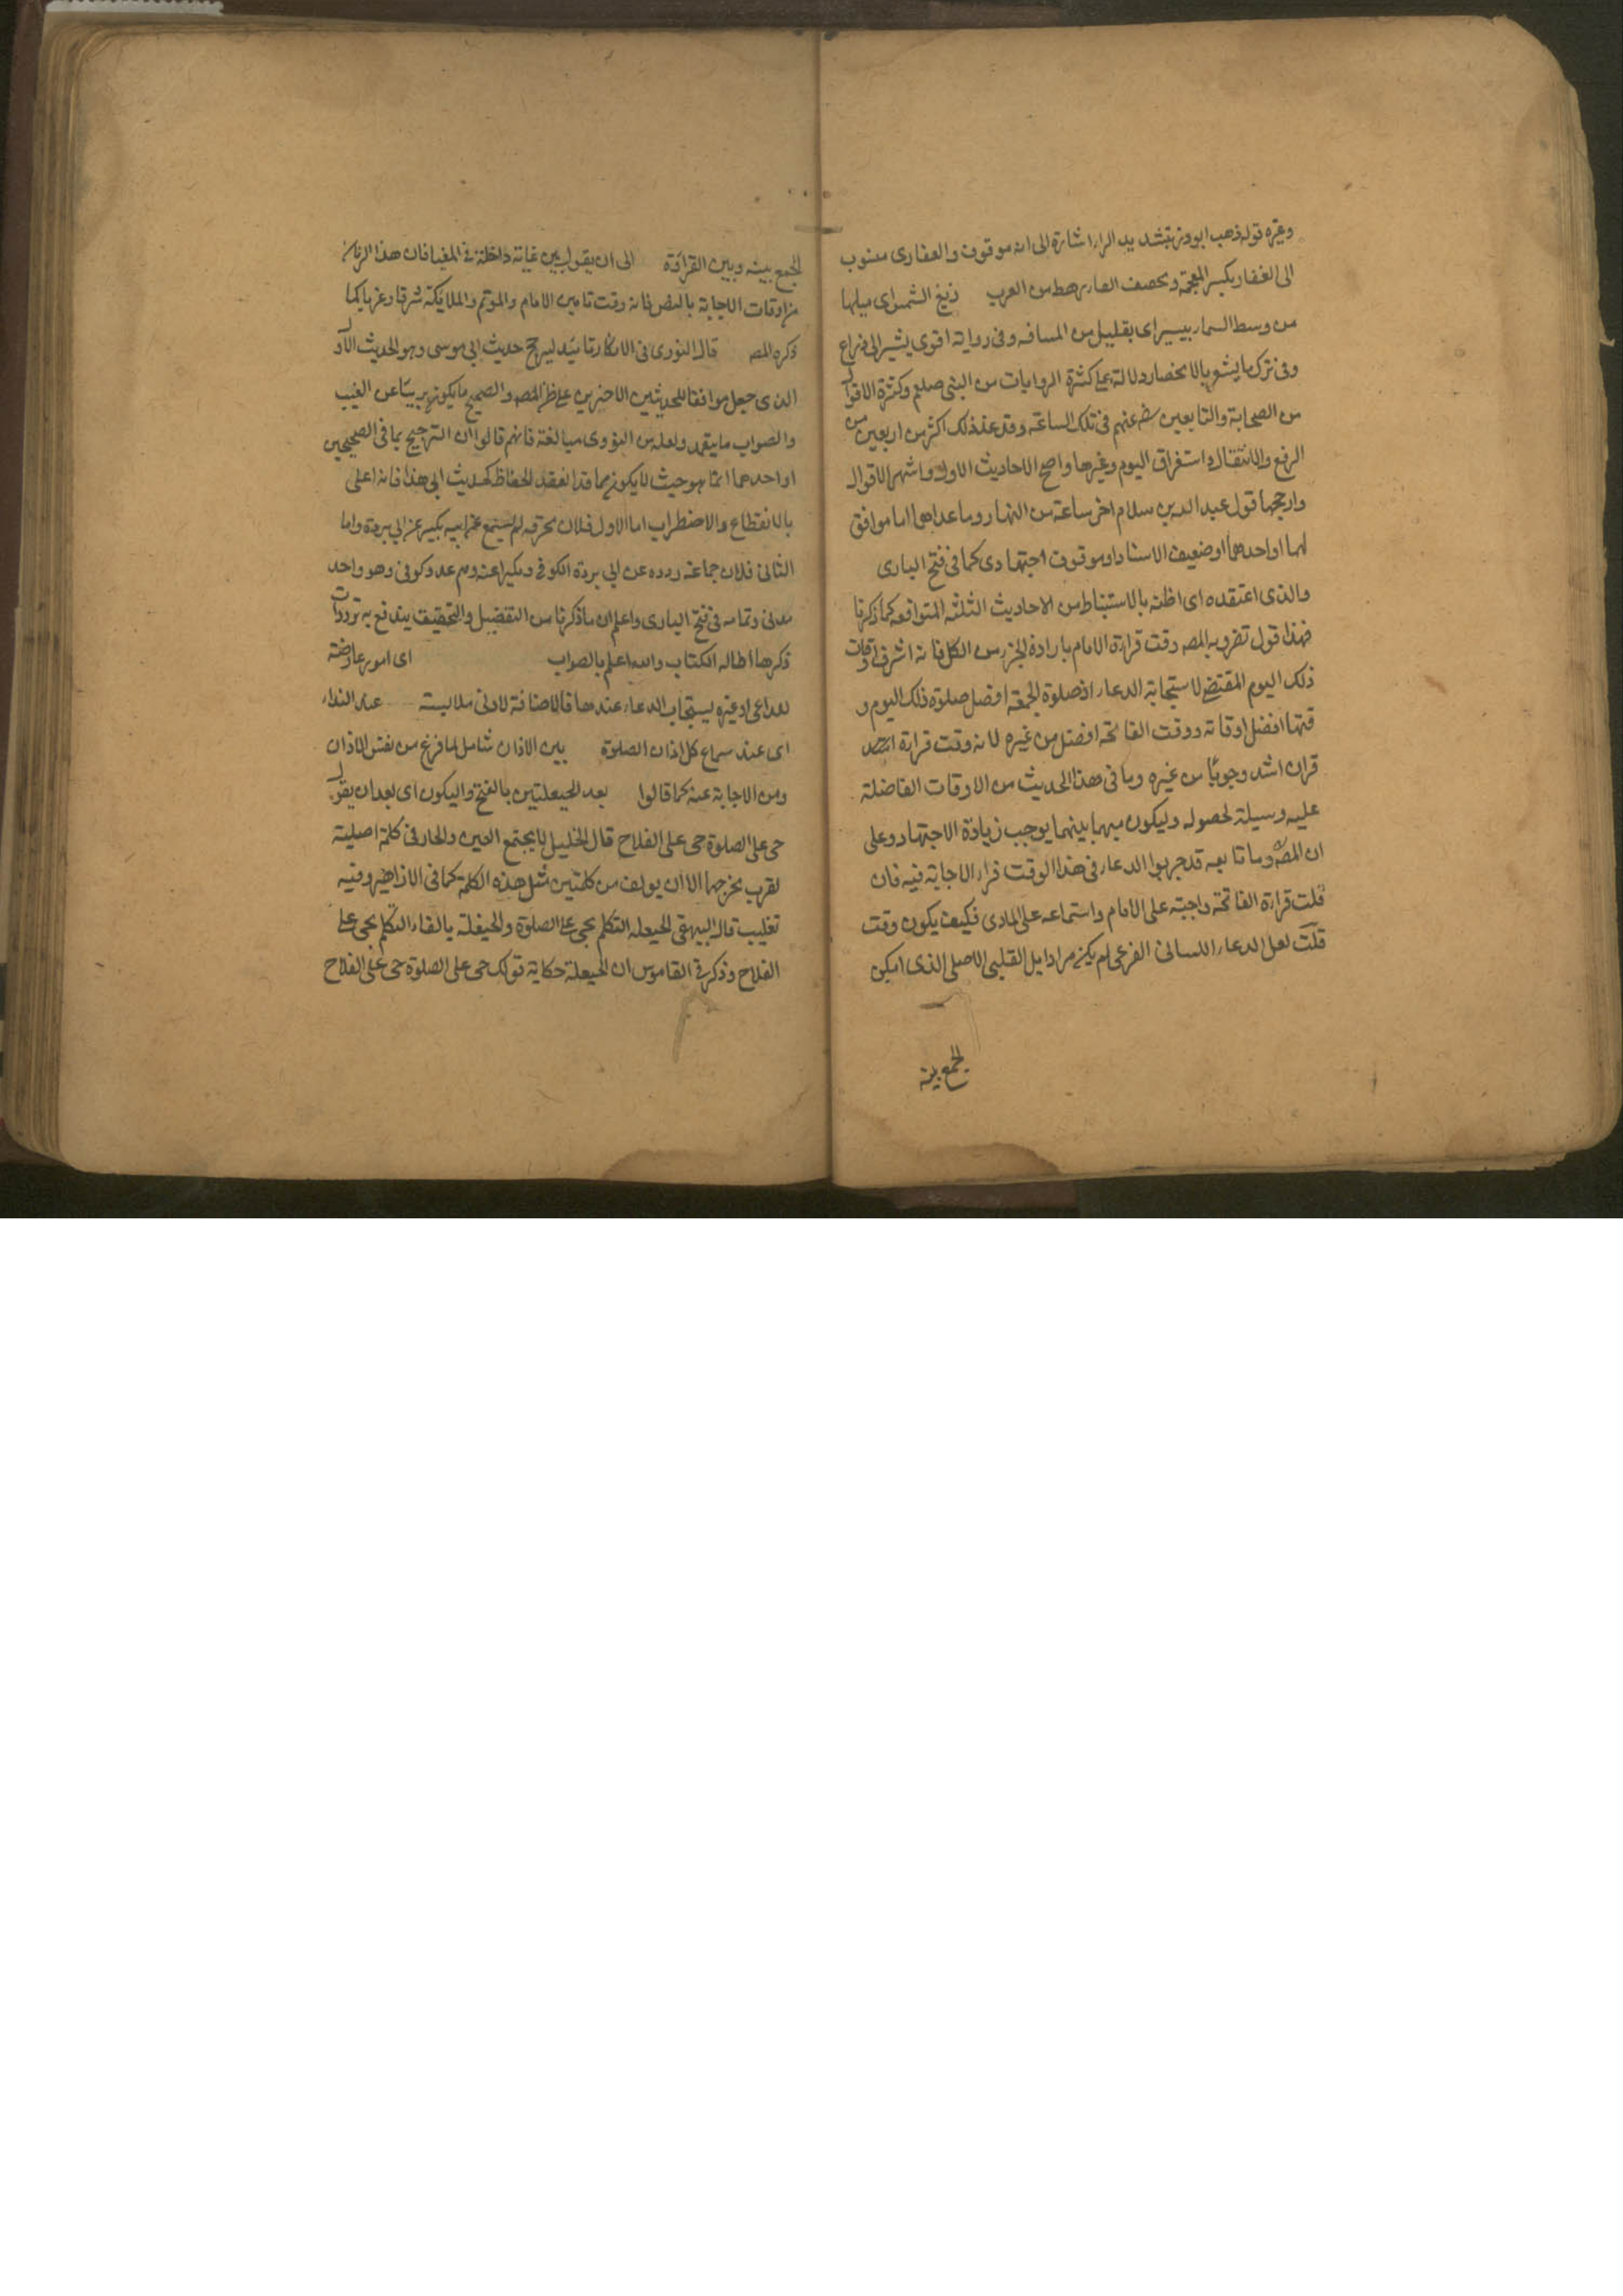 وغيره قوله ذهب ابو ذر بتشديد الراء اشارة الى انه موقوف والغفارى منسوب
الى الغفار بكسر المعجمة وتخفيف الفاء رهط من العرب زيغ الشمس اى ميلها
من وسط السماء بيسير اى بقليل من المسافه وفى رواية اقوى يشير الى ذراع
وفى ترك ما يشعر بالانحصار دلالة على كثرة الروايات من النبى صلعم وكثرة الاقوال
من الصحابة والتابعين رض عنهم فى تلك الساعة وقد عد ذلك اكثر من اربعين من
الرفع والانتقال واستغراق اليوم وغيرها واصح الاحاديث الاول واشهر الاقوال
وارجحها قول عبد الله بن سلام اخر ساعة من النهار وما عداهما اما موافق
لهما او احدهما او ضعيف الاسناد او موقوف اجتهادى كما فى فتح البارى
والذى اعتقده اى اظنه بالاستنباط من الاحاديث الثلثه المتوافعه كما ذكرنا
فهذا قول تفرد به المصه وقت قراءة الامام بارادة الجزء من الكل فانه اشرف اوقات
ذلك اليوم المقتضى لاستجابة الدعاء اذ صلوة الجمعة افضل صلوة ذلك اليوم و
قتها افضل اوقاته ووقت الفاتحة افضل من غيره لانه وقت قراءة
قران اشد وجوبا من غيره وما فى هذا الحديث من الاوقات الفاضلة
عليه وسيلة لحصوله وليكون مبهما بينهما يوجب زيادة الاجتهاد وعلى
ان المصه وما تابعه قد جربوا الدعاء فى هذا الوقت فراء الاجابة فيه فان
قلت قراءة الفاتحة واجبة على الامام واستماعه على المادى فكيف يكون وقت
قلت لعل الدعاء اللسانى الفرعى لم يكن مرادا بل القلبى الاصلى الذى امكن
الجمع بينه
الجمع بينه وبين القراءة الى ان يقول بين غاية داخلة فى المغيا فان هذا الزمان
من اوقات الاجابة بالنص فانه وقت تامين الامام والمؤتم والملائكة شرقا وغربا كما
ذكره المصه قال النووى فى الاذكار تائيد ليرجح حديث ابى موسى وهو الحديث الاول
الذى جعل موافقا للحديثين الاخرين على ظن المصه والصحيح ما يكون بريئا عن العيب
والصواب ما يتعمد ولعله من النووى مبالغة فانهم قالوا ان الترجيح بما فى الصحيحين
او احدهما انما هو حيث لا يكون مما قد انتقد الحفاظ كحديث ابى هذا فانه اعلى
بالانقطاع والاضطراب اما الاول فلان مخرقه لم يسمع عن ابيه بكير عن ابى بردة واما
الثانى فلان جماعة رووه عن ابى بردة الكوفى وبكير عنه وهم عدد كوفى وهو واحد
مدنى وتمامه فى فتح البارى واعلم ان ما ذكرنا من التفضيل والتحقيق يندفع به ترددات
ذكرها اطاله الكتاب والله اعلم بالصواب اى امور عارضة
للداعى او غيره يستجاب الدعاء عندها فالاضافة لادنى ملابسة عند النداء
اى عند سماع كل اذان الصلوة بين الاذان شامل لما فرغ من نفس الاذان
ومن الاجابة عنه كما قالوا بعد الحيعلتين بالفتح والسكون اى بعد ان يقول
حى على الصلوة حى على الفلاح قال الخليل لا يجتمع العين والحاء فى كلمة اصلية
لقرب مخرجهما الا ان يولف من كلمتين مثل هذه الكلمة كما فى الازاهير وفيه
تغليب قال البيهقى الحيعله التكلم بحى على الصلوة والحيفلة بالفاء التكلم بحى على
الفلاح وذكر فى القاموس ان الحيعلة حكاية قولك حى على الصلوة حى على الفلاح